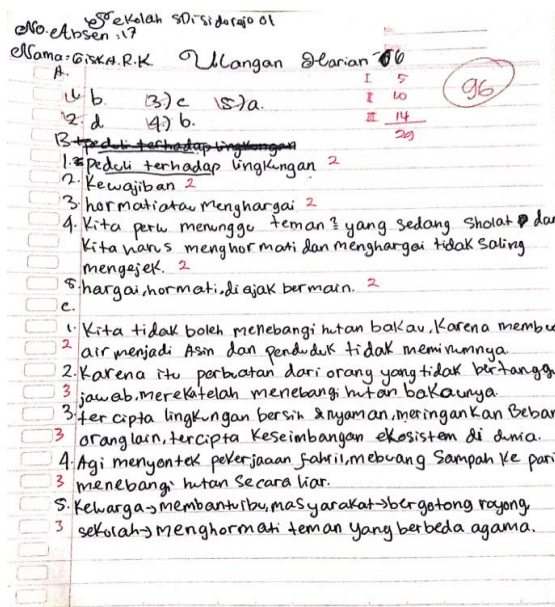 Sekolah SDI Sidorejo 01
No. Absen : 17
Nama : GISKA.R.K. Ulangan Harian 06
A.
1. b. 3.) c 5.) a.
2. d 4.) b.
I 5
II 10
III 14
29
96
B peduli terhadap lingkungan
1. peduli terhadap lingkungan 2
2. Kewajiban 2
3. hormatiatau menghargai 2
4. Kita perlu menunggu teman2 yang sedang sholat dan
Kita harus menghormati dan menghargai tidak saling
mengejek. 2
5. hargai, hormati, di ajak bermain. 2
C.
1. Kita tidak boleh menebangi hutan bakau, Karena membu
2 air menjadi Asin dan penduduk tidak meminumnya
2. Karena itu perbuatan dari orang yang tidak bertangg
3 jawab, merekatelah menebangi hutan bakaunya.
3. tercipta lingkungan bersih & nyaman, meringankan Beban
3 orang lain, tercipta Keseimbangan ekosistem di dunia.
4. Agi menyontek pekerjaaan fahril, mebuang Sampah Ke pari
3 menebangi hutan Secara liar.
5. Kelwarga→membantu ibu, masyarakat→bergotong royong,
3 sekolah→menghormati teman yang berbeda agama.